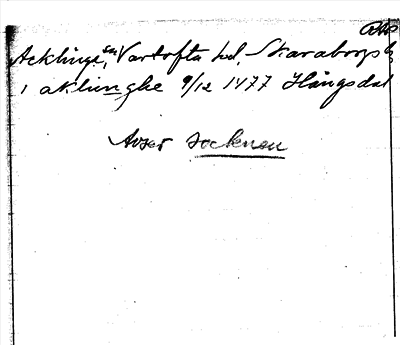 Acklinga sn, Vartofta hd, Skaraborgs
i aklunghe 9/12 1477 Hångsdal
Avser socknen